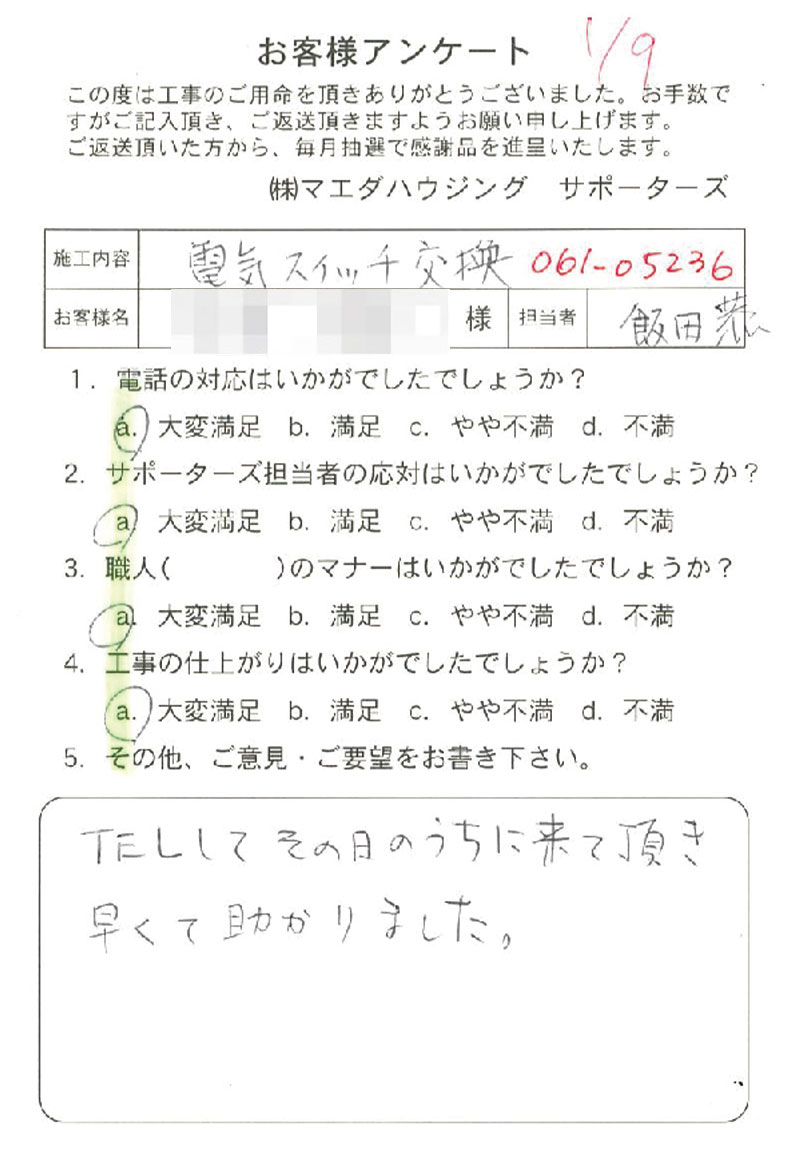 1/9
お客様アンケート
この度は工事のご用命を頂きありがとうございました。お手数で
すがご記入頂き、ご返送頂きますようお願い申し上げます。
ご返送頂いた方から、毎月抽選で感謝品を進呈いたします。
㈱マエダハウジング サポーターズ
施工内容 電気スイッチ交換 061-05236
お客様名 様 担当者 飯田恭
1. 電話の対応はいかがでしたでしょうか？
a. 大変満足 b. 満足 c. やや不満 d. 不満
2. サポーターズ担当者の応対はいかがでしたでしょうか？
a. 大変満足 b. 満足 c. やや不満 d. 不満
3. 職人( )のマナーはいかがでしたでしょうか？
a. 大変満足 b. 満足 c. やや不満 d. 不満
4. 工事の仕上がりはいかがでしたでしょうか？
a. 大変満足 b. 満足 c. やや不満 d. 不満
5. その他、ご意見・ご要望をお書き下さい。
TELしてその日のうちに来て頂き
早くて助かりました。